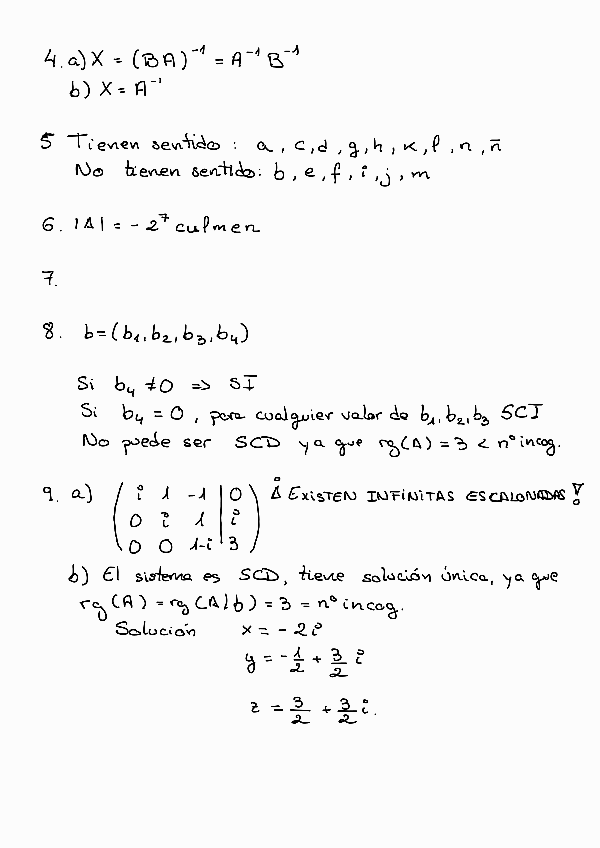 4. a) X = (BA)⁻¹ = A⁻¹ B⁻¹
b) X = A⁻¹
5 Tienen sentido : a, c, d, g, h, k, l, n, ñ
No tienen sentido: b, e, f, i, j, m
6. |A| = -2⁷ culmen
7.
8. b=(b₁, b₂, b₃, b₄)
Si b₄ ≠ 0 => SI
Si b₄ = 0, para cualquier valor de b₁, b₂, b₃ SCI
No puede ser SCD ya que rg(A) = 3 < nº incog.
9. a) ( i 1 -1 | 0 ) ¡EXISTEN INFINITAS ESCALONADAS!
0 i 1 | i
0 0 1-i | 3
b) El sistema es SCD, tiene solución única, ya que
rg(A) = rg(A/b) = 3 = nº incog.
Solución x = -2i
y = -1/2 + 3/2 i
z = 3/2 + 3/2 i.